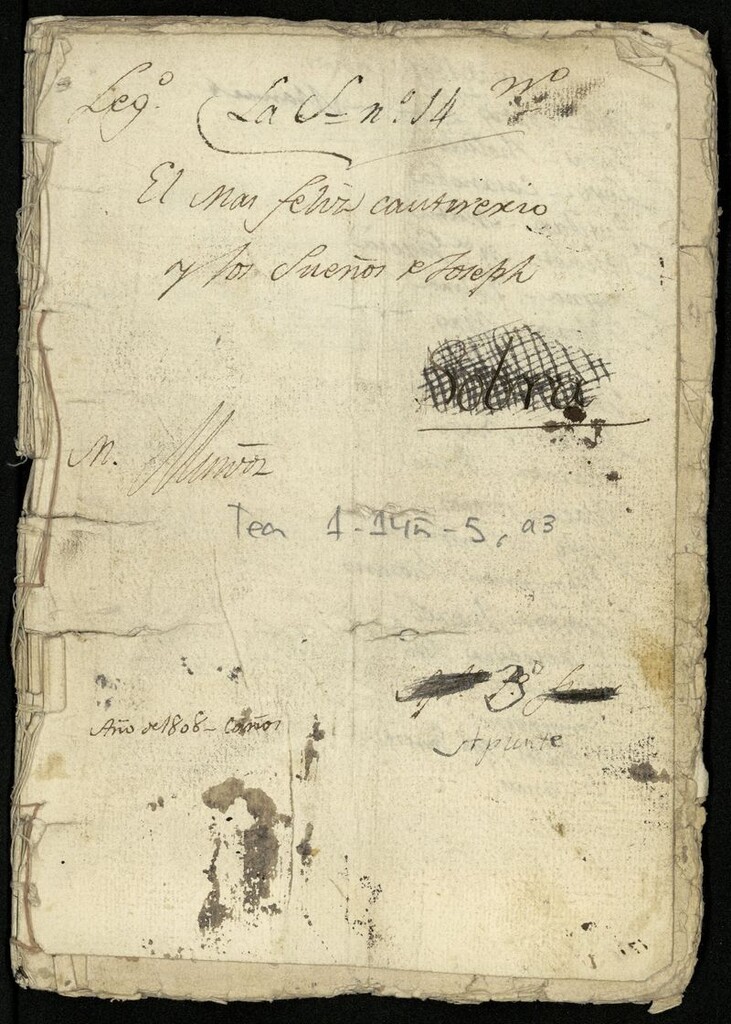 Leg.º La S— nº. 14
El Mas feliz cautiverio
y los Sueños de Joseph
M. Munoz
Tea 1-142-5, a3
3º
Año de 1808- Caños
Apunte